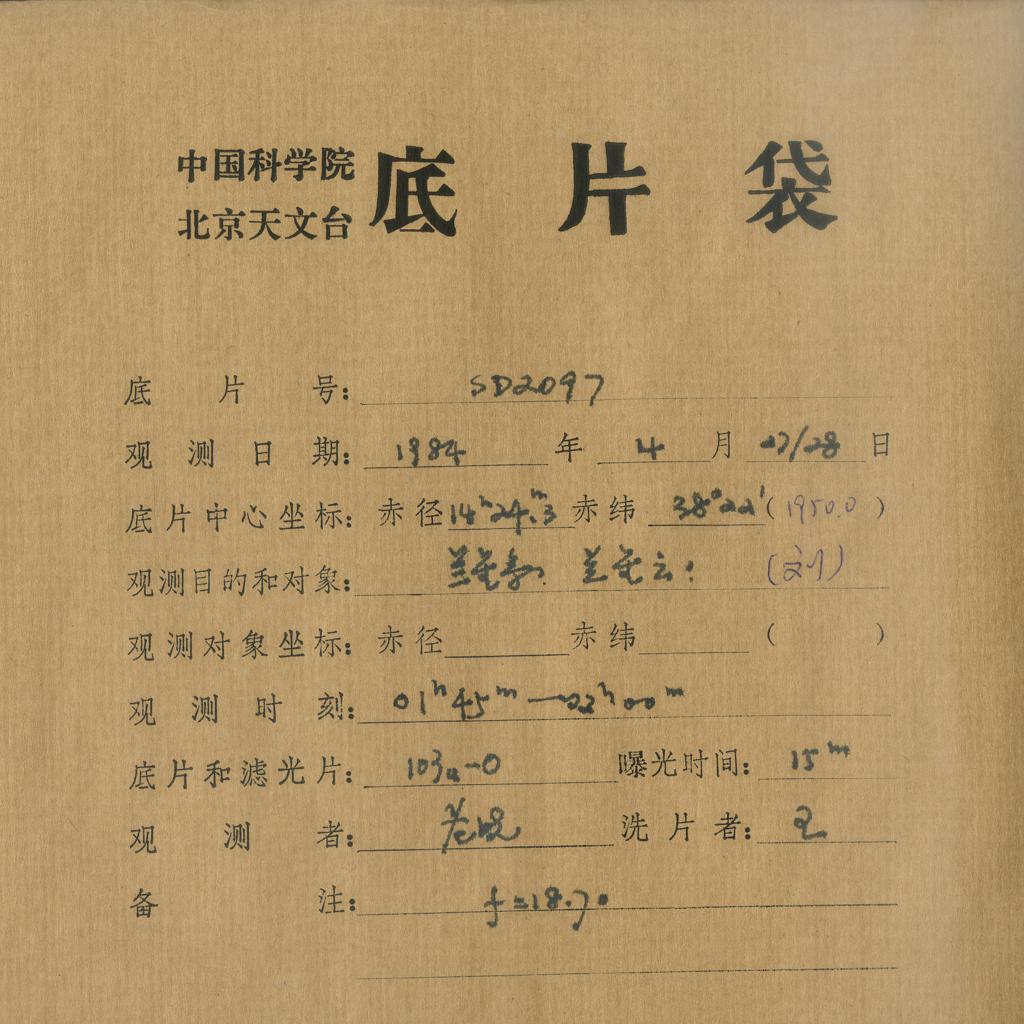 中国科学院
北京天文台
底片袋
底片号: SD2097
观测日期: 1984 年 4 月 27/28 日
底片中心坐标: 赤径 14ʰ24ᵐ.3 赤纬 38°22′ (1950.0)
观测目的和对象: (刘)
观测对象坐标: 赤径 赤纬 ( )
观测时刻: 01ʰ45ᵐ—02ʰ00ᵐ
底片和滤光片: 103a-O 曝光时间: 15ᵐ
观测者: 洗片者: 王
备注: f=18.70